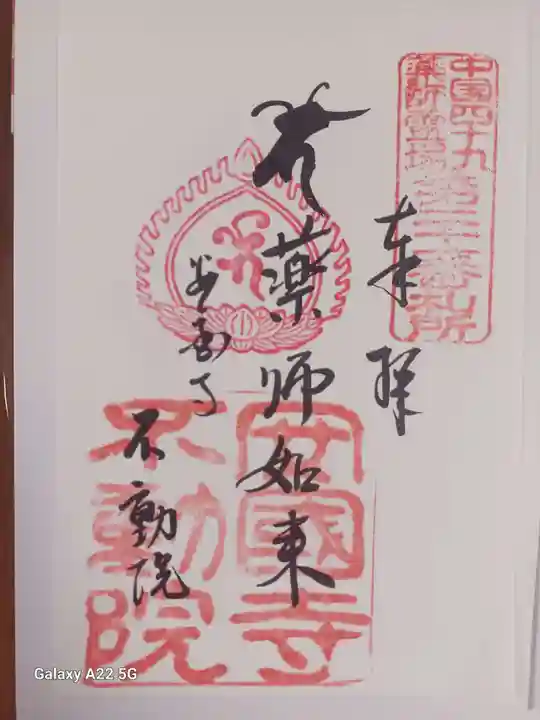 奉拝
中国四十九
薬師霊場第二十番札所
薬師如来
安国寺
不動院
安國寺
不動院
Galaxy A22 5G